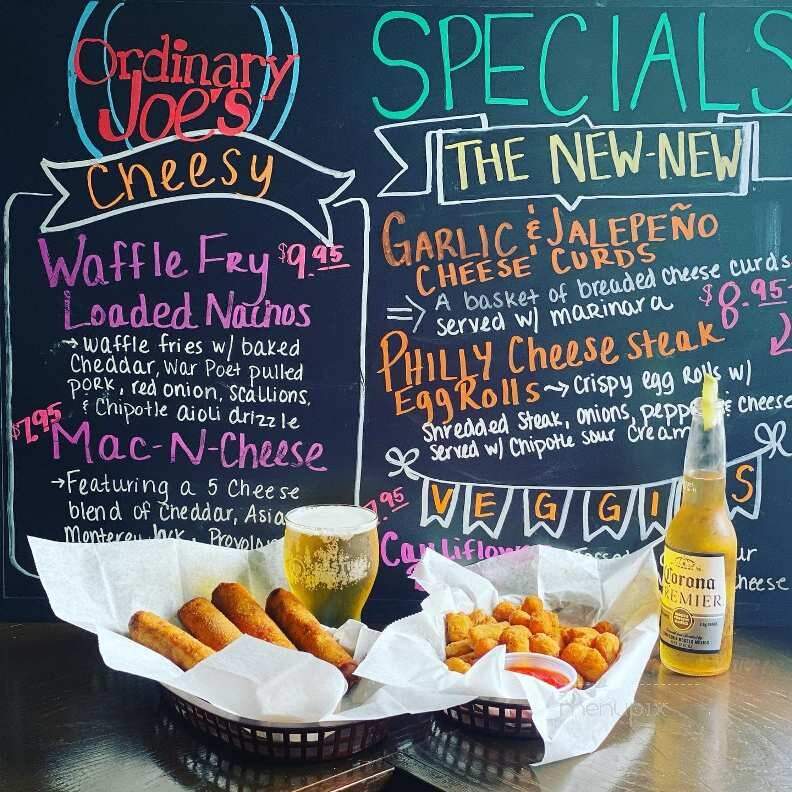 Ordinary
Joe's
Cheesy
Waffle Fry $9.95
Loaded Nachos
→ waffle fries w/ baked
Cheddar, War Poet pulled
pork, red onion, scallions,
& Chipotle aioli drizzle
$7.95
Mac-N-Cheese
→ Featuring a 5 Cheese
blend of Cheddar, Asia
Monterey Jack, Provolon
SPECIALS
THE NEW-NEW
GARLIC & JALEPEÑO
CHEESE CURDS
⇒ A basket of breaded cheese curds
served w/ marinara $8.95
PHILLY Cheese steak
Egg Rolls → Crispy egg rolls w/
Shredded steak, onions, peppe & cheese
served w/ Chipotle sour cream
VEGGI S
7.95
Cauliflow
ur
cheese
Corona
PREMIER
menupix